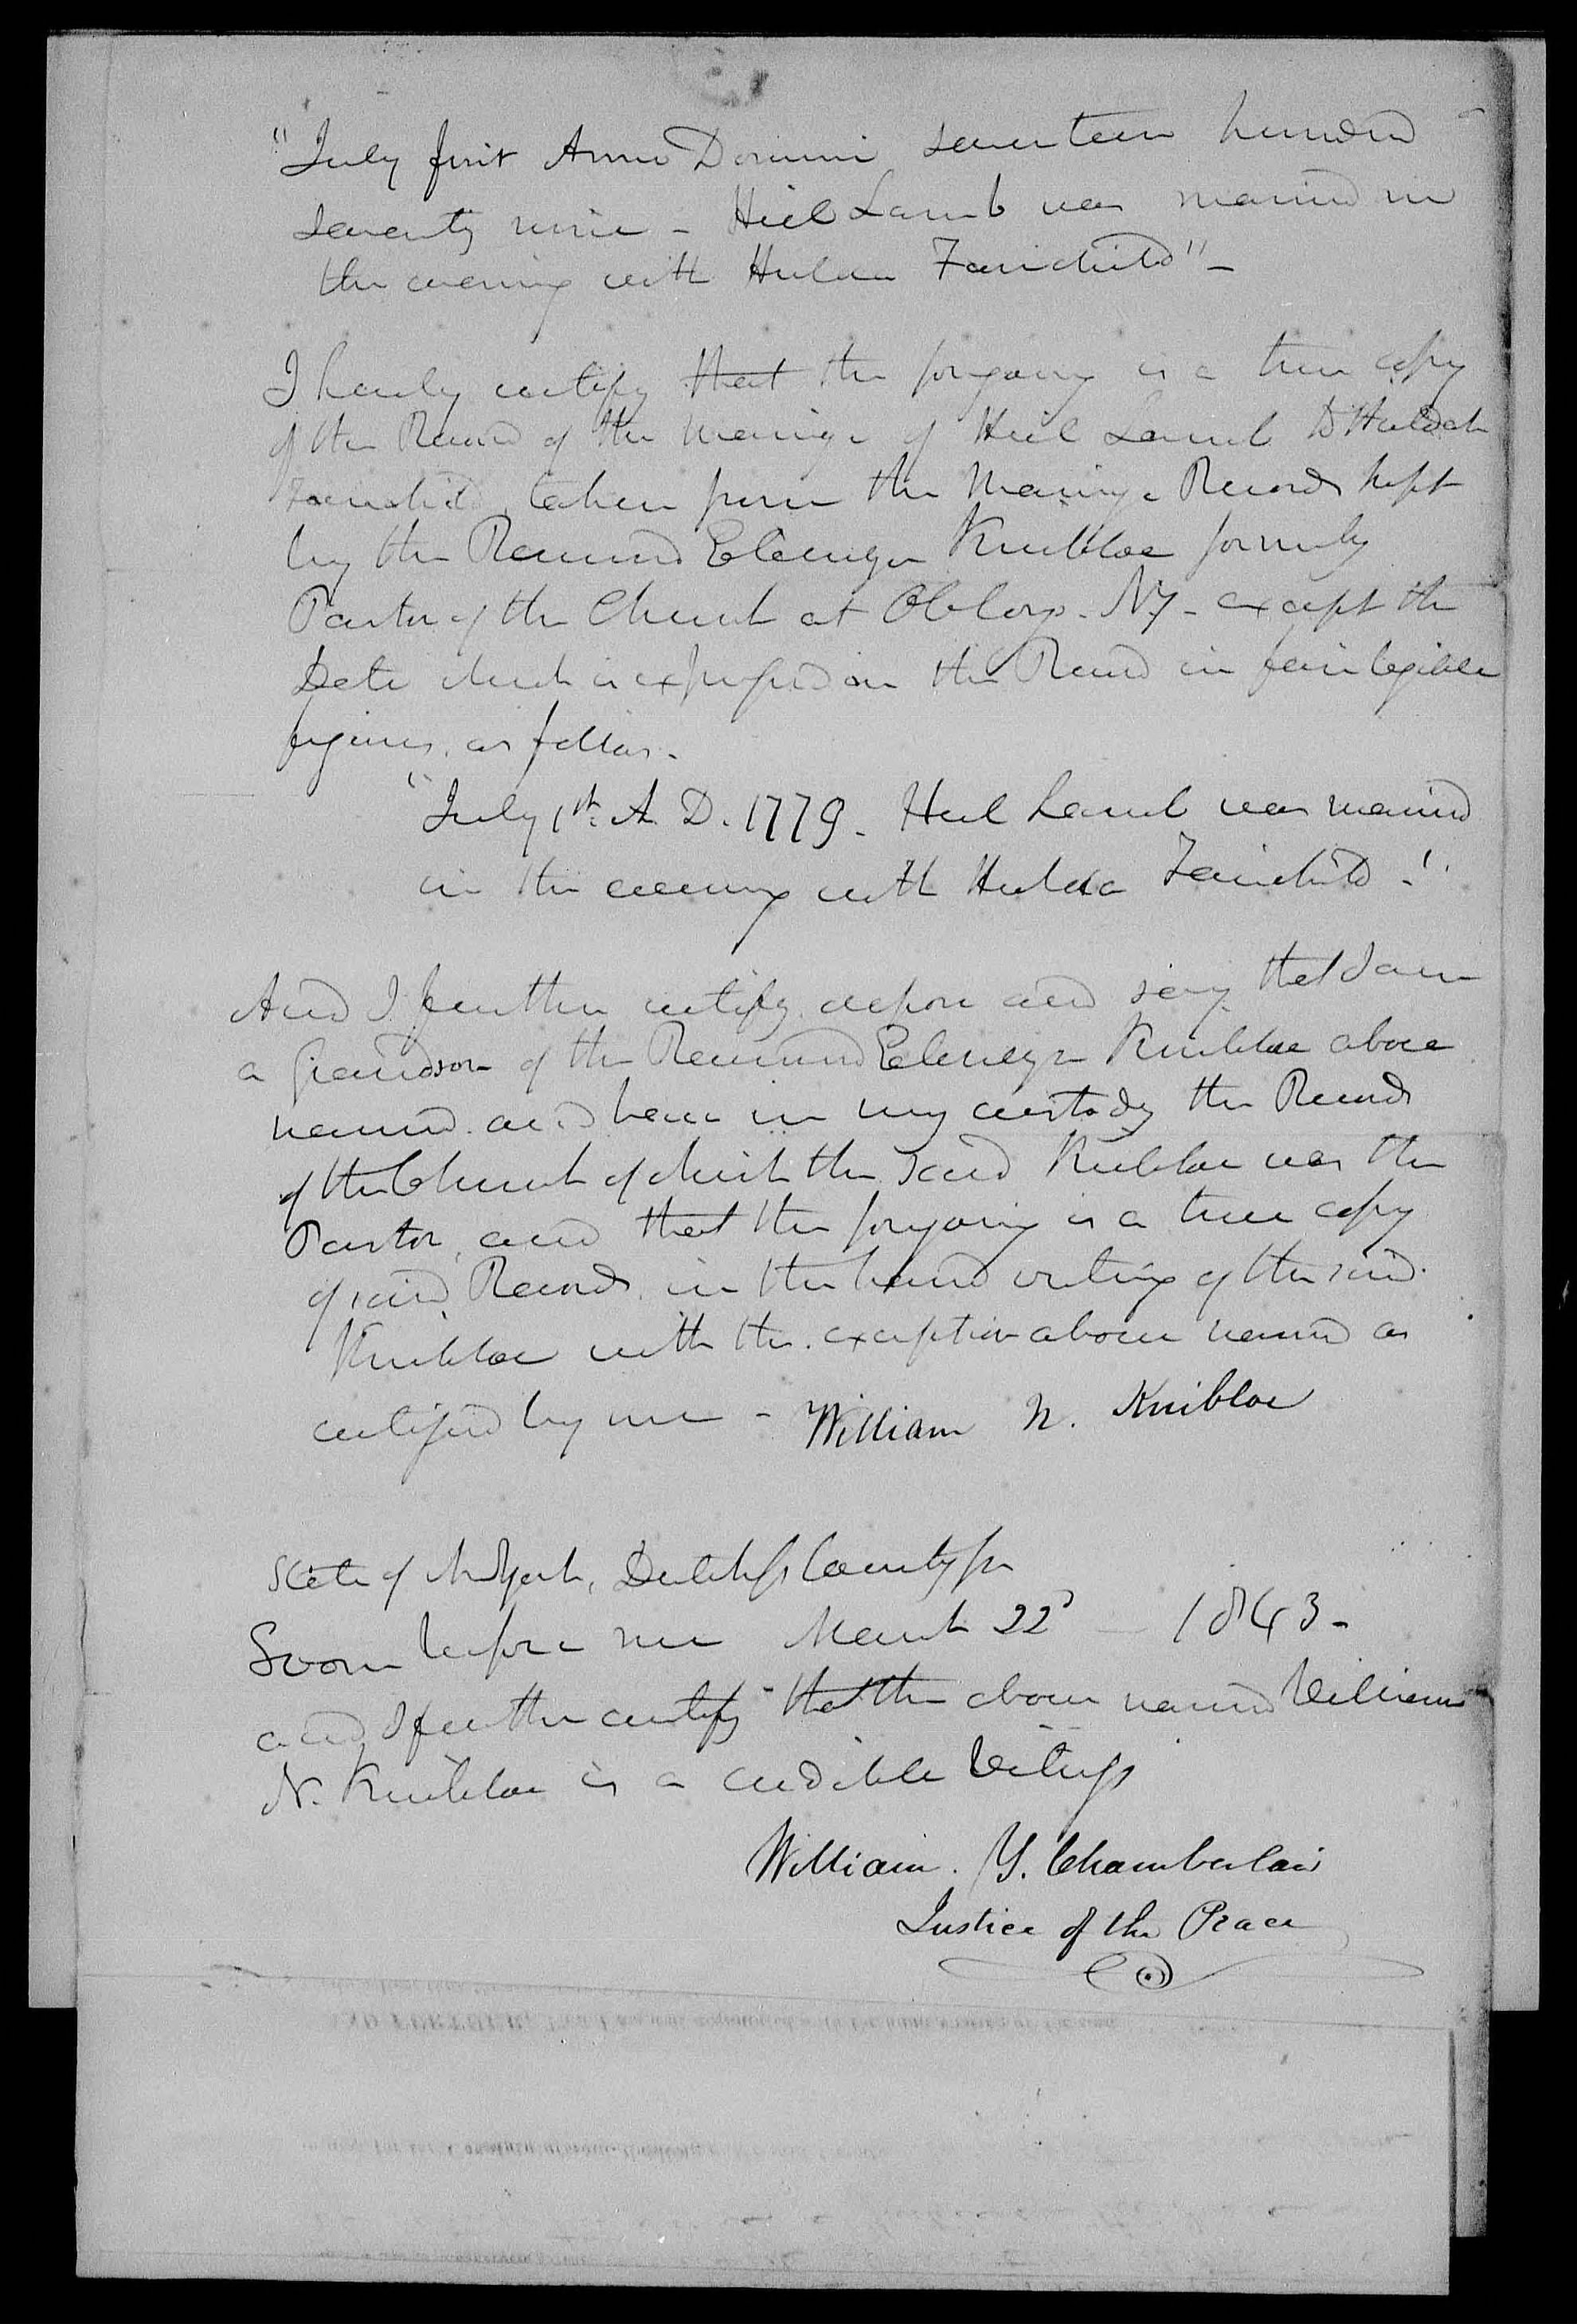 "July first Anno Domini seventeen hundred
seventy nine - Hiel Lamb was married in
the evening with Hulda Fairchild" -
I hereby certify that the foregoing is a true copy
of the Record of the Marriage of Hiel Lamb to Huldah
Fairchild, taken from the Marriage Records kept
by the Reverend Ebenezer Knibloe formerly
Pastor of the Church at Oblong - NY - except the
Date which is expressed on the Record in fair legible
figures, as follows.
"July 1st. A. D. 1779 - Hiel Lamb was married
in the evening with Hulda Fairchild."
And I further certify depose and say that I am
a Grandson of the Reverend Ebenezer Knibloe above
named and have in my custody the Records
of the Church of which the said Knibloe was the
Pastor, and that the foregoing is a true copy
of said Records in the hand writing of the said
Knibloe with the exception above named as
certified by me - William N. Knibloe
State of New York, Dutchess County ss
Sworn before me March 22d 1843 -
and I further certify that the above named William
N. Knibloe is a credible Witness
William. Y. Chamberlain
Justice of the Peace